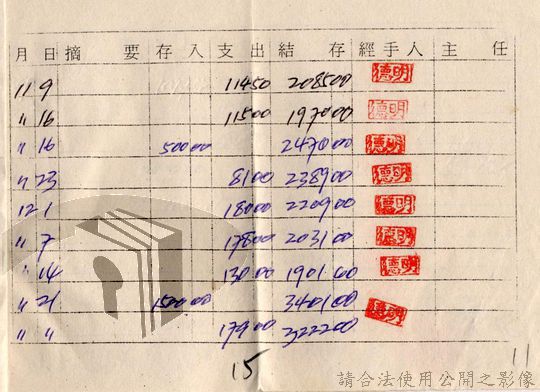 月 日 摘 要 存入 支出 結存 經手人 主任
11 9 11450 208500 德明
〃 16 11500 197000 德明
〃 16 50000 247000 德明
〃 23 8100 238900 德明
12 1 18000 220900 德明
〃 7 17800 203100 德明
〃 14 13000 190100 德明
〃 21 150000 340100 德明
〃 〃 17900 322200
15
11
請合法使用公開之影像